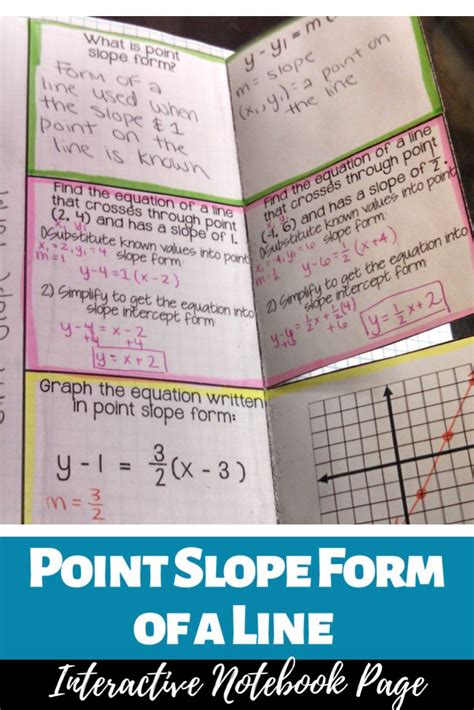 What is point
slope form?
Form of a
line used when
the slope & 1
point on the
line is known
y - y₁ = m
m = slope
(x₁, y₁) = a point on
the line
Find the equation of a line
that crosses through point
(2, 4) and has a slope of 1.
x₁ y₁
1)Substitute known values into point
slope form
x₁ = 2, y₁ = 4
m = 1
y-4=1(x-2)
2) Simplify to get the equation into
slope intercept form
y-4 = x-2
+4 +4
y = x+2
Find the equation of a line
that crosses through point
6) and has a slope of ½.
x₁ y₁
1)Substitute known values into point
slope form
y₁ = 6
y-6=½(x+4)
2) Simplify to get the equation into
slope intercept form
y = ½x+2
Graph the equation written
in point slope form:
y - 1 = 3/2 (x - 3)
m = 3/2
Point Slope Form
of a Line
Interactive Notebook Page